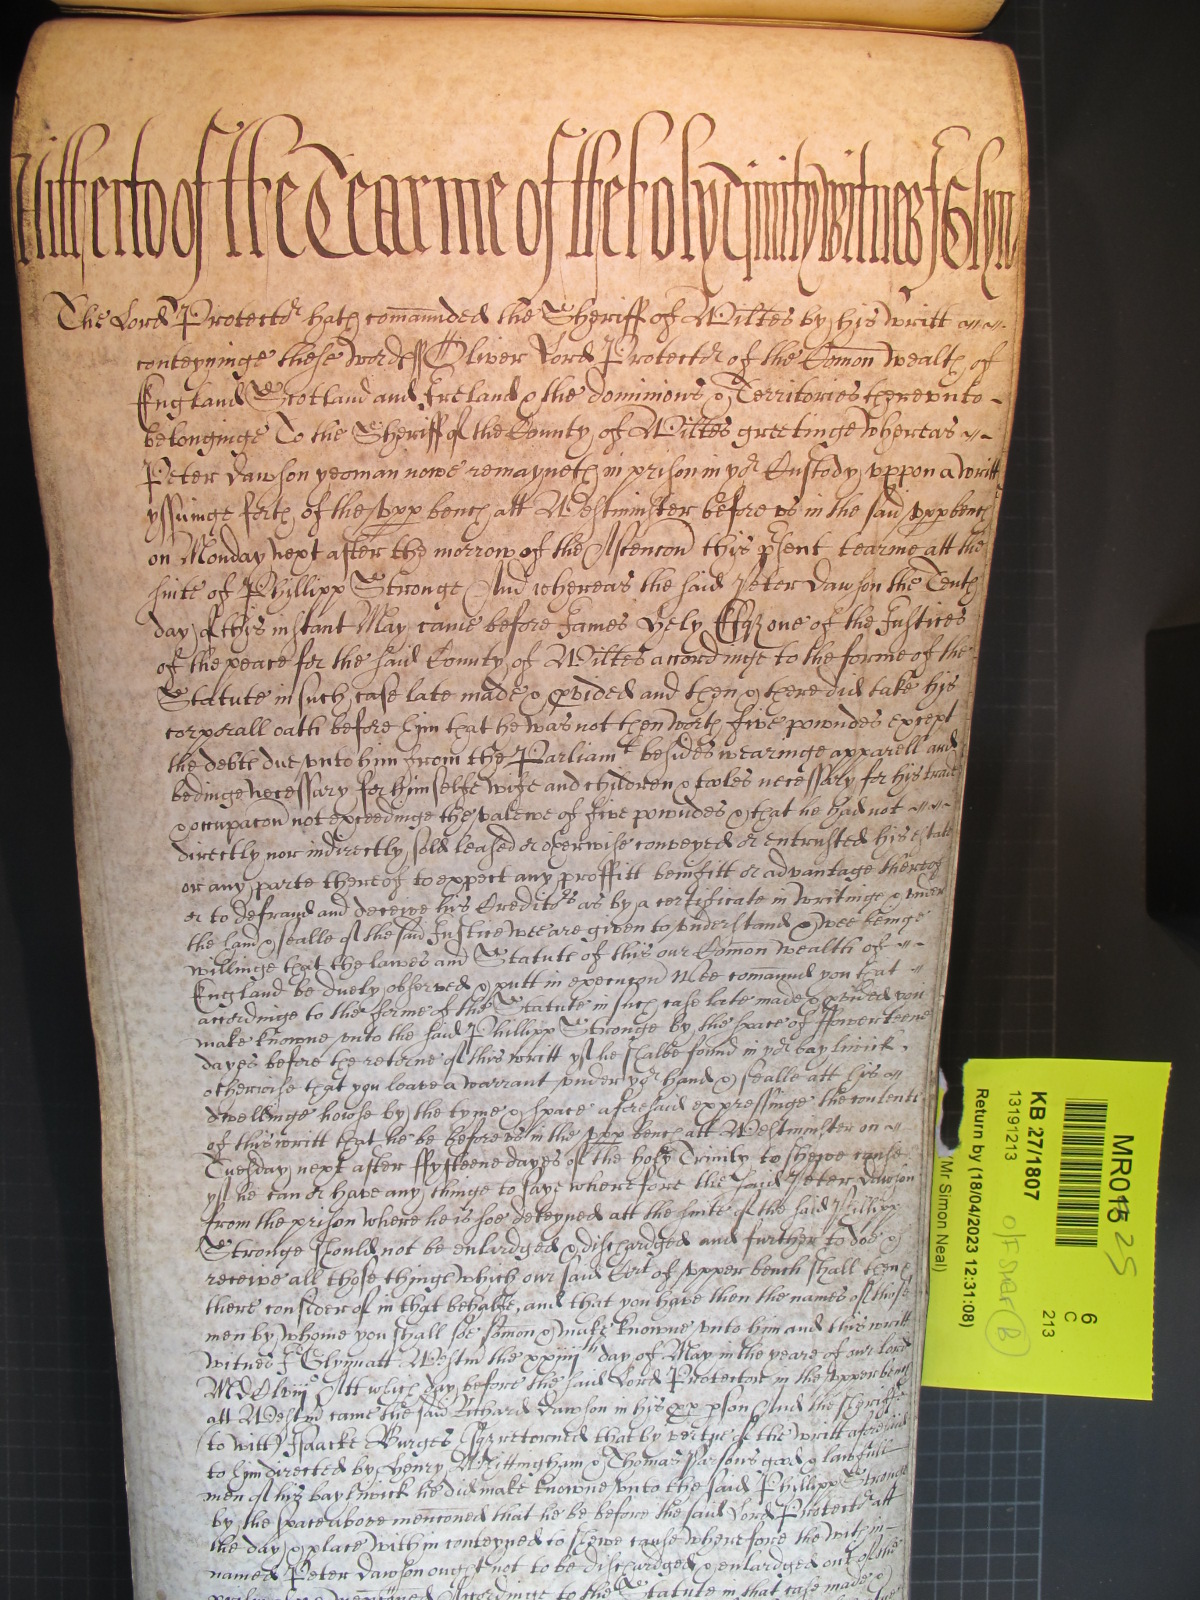 Hitherto of the Tearme of the holy Trinity Witnes J Glyn
The Lord Protector hath comaunded the Sheriff of Wiltes by his writt
conteyninge these wordes Oliver Lord Protector of the Comon wealth of
England Scotland and Ireland & the dominions & Territories thereunto
belonginge To the Sheriff of the County of Wiltes greetinge Whereas
Peter Dawson yeoman nowe remayneth in prison in yor Custody uppon a writt
yssuinge forth of the upp bench att Westminster before us in the said upp bench
on Monday next after the morrow of the Ascencon this psent tearme att the
suite of Phillipp Stronge And whereas the said Peter Dawson the Tenth
day of this instant May came before James Hely Esqr one of the Justices
of the peace for the said County of Wiltes accordinge to the forme of the
Statute in such case late made & pvided and then & there did take his
corporall oath before him that he was not then worth five powndes except
the debte due unto him from the Parliamt besides wearinge apparell and
bedinge necessary for himselfe wife and children & tooles necessary for his trade
& occupacon not exceedinge the valewe of five powndes & that he had not
directly nor indirectly sold leased or otherwise conveyed or entrusted his estate
or any parte thereof to expect any proffitt benifitt or advantage thereof
or to defraud and deceive his Creditors as by a certificate in writinge & under
the hand & sealle of the said Justice wee are given to understand & wee beinge
willinge that the lawes and Statute of this our Comon wealth of
England be duely observed & putt in execucon Wee comaund you that
accordinge to the forme of the Statute in such case late made & pvided you
make knowne unto the said Phillipp Stronge by the space of ffowerteene
dayes before the returne of this writt yf he shalbe found in yor bayliwick
otherwise that you leave a warrant under yor hand & sealle att his
dwellinge howse by the tyme & space aforesaid expressinge the contents
of this writt that he be before us in the upp bench att Westminster on
Tuesday next after ffyfteene dayes of the holy Trinity to shewe cause
yf he can or have any thinge to saye wherefore the said Peter Dawson
from the prison where he is soe deteyned att the suite of the said Phillipp
Stronge should not be enlardged & dischardged and further to doe &
receive all those things which our said Cort of upper bench shall then &
there consider of in that behalfe, and that you have then the names of those
men by whome you shall soe somon & make knowne unto him and this writt
Witnes J Glynn att Westm the xxiiiith day of May in the yeare of our Lord
MDClviii Att which day before the said Lord Protector in the upper bench
att Westm came the said Richard Dawson in his pp pson And the Sheriffe
(to witt) Isaacke Burges Esqr returned that by vertue of the writt aforesaid
to him directed by Henry Whittingham & Thomas Parsons good & lawfull
men of his baylywick he did make knowne unto the said Phillipp Stronge
by the space above mencioned that he be before the said Lord Protector att
the day & place within conteyned to shewe cause wherefore the within
named Peter Dawson ought not to be dischardged & enlardged out of the
Accordinge to the Statute in that case made &
MR01 25
KB 27/1807
13191213
Return by (18/04/2023 12:31:08)
(Mr Simon Neal)
6
C
213
B